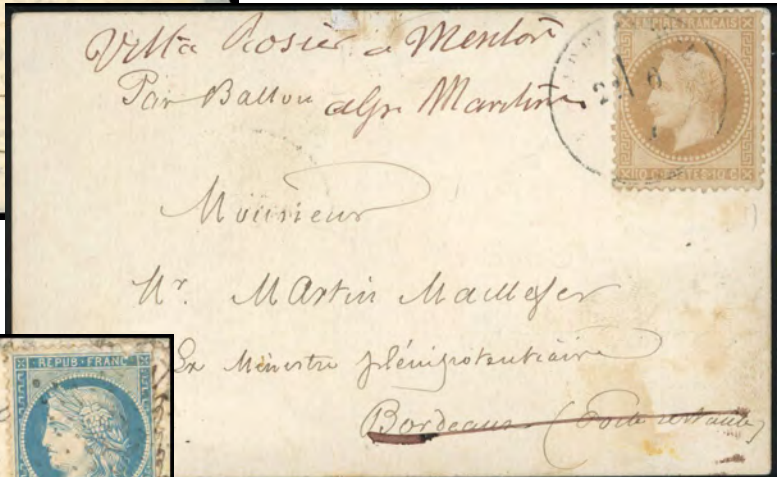 Villa Rosier a Menton
Par Ballon alpes Maritimes
EMPIRE FRANÇAIS
10 C POSTES 10 C
Monsieur
Mr. Martin
Ex Ministre plénipotentiaire
Bordeaux (Poste restante)
REPUB FRANC